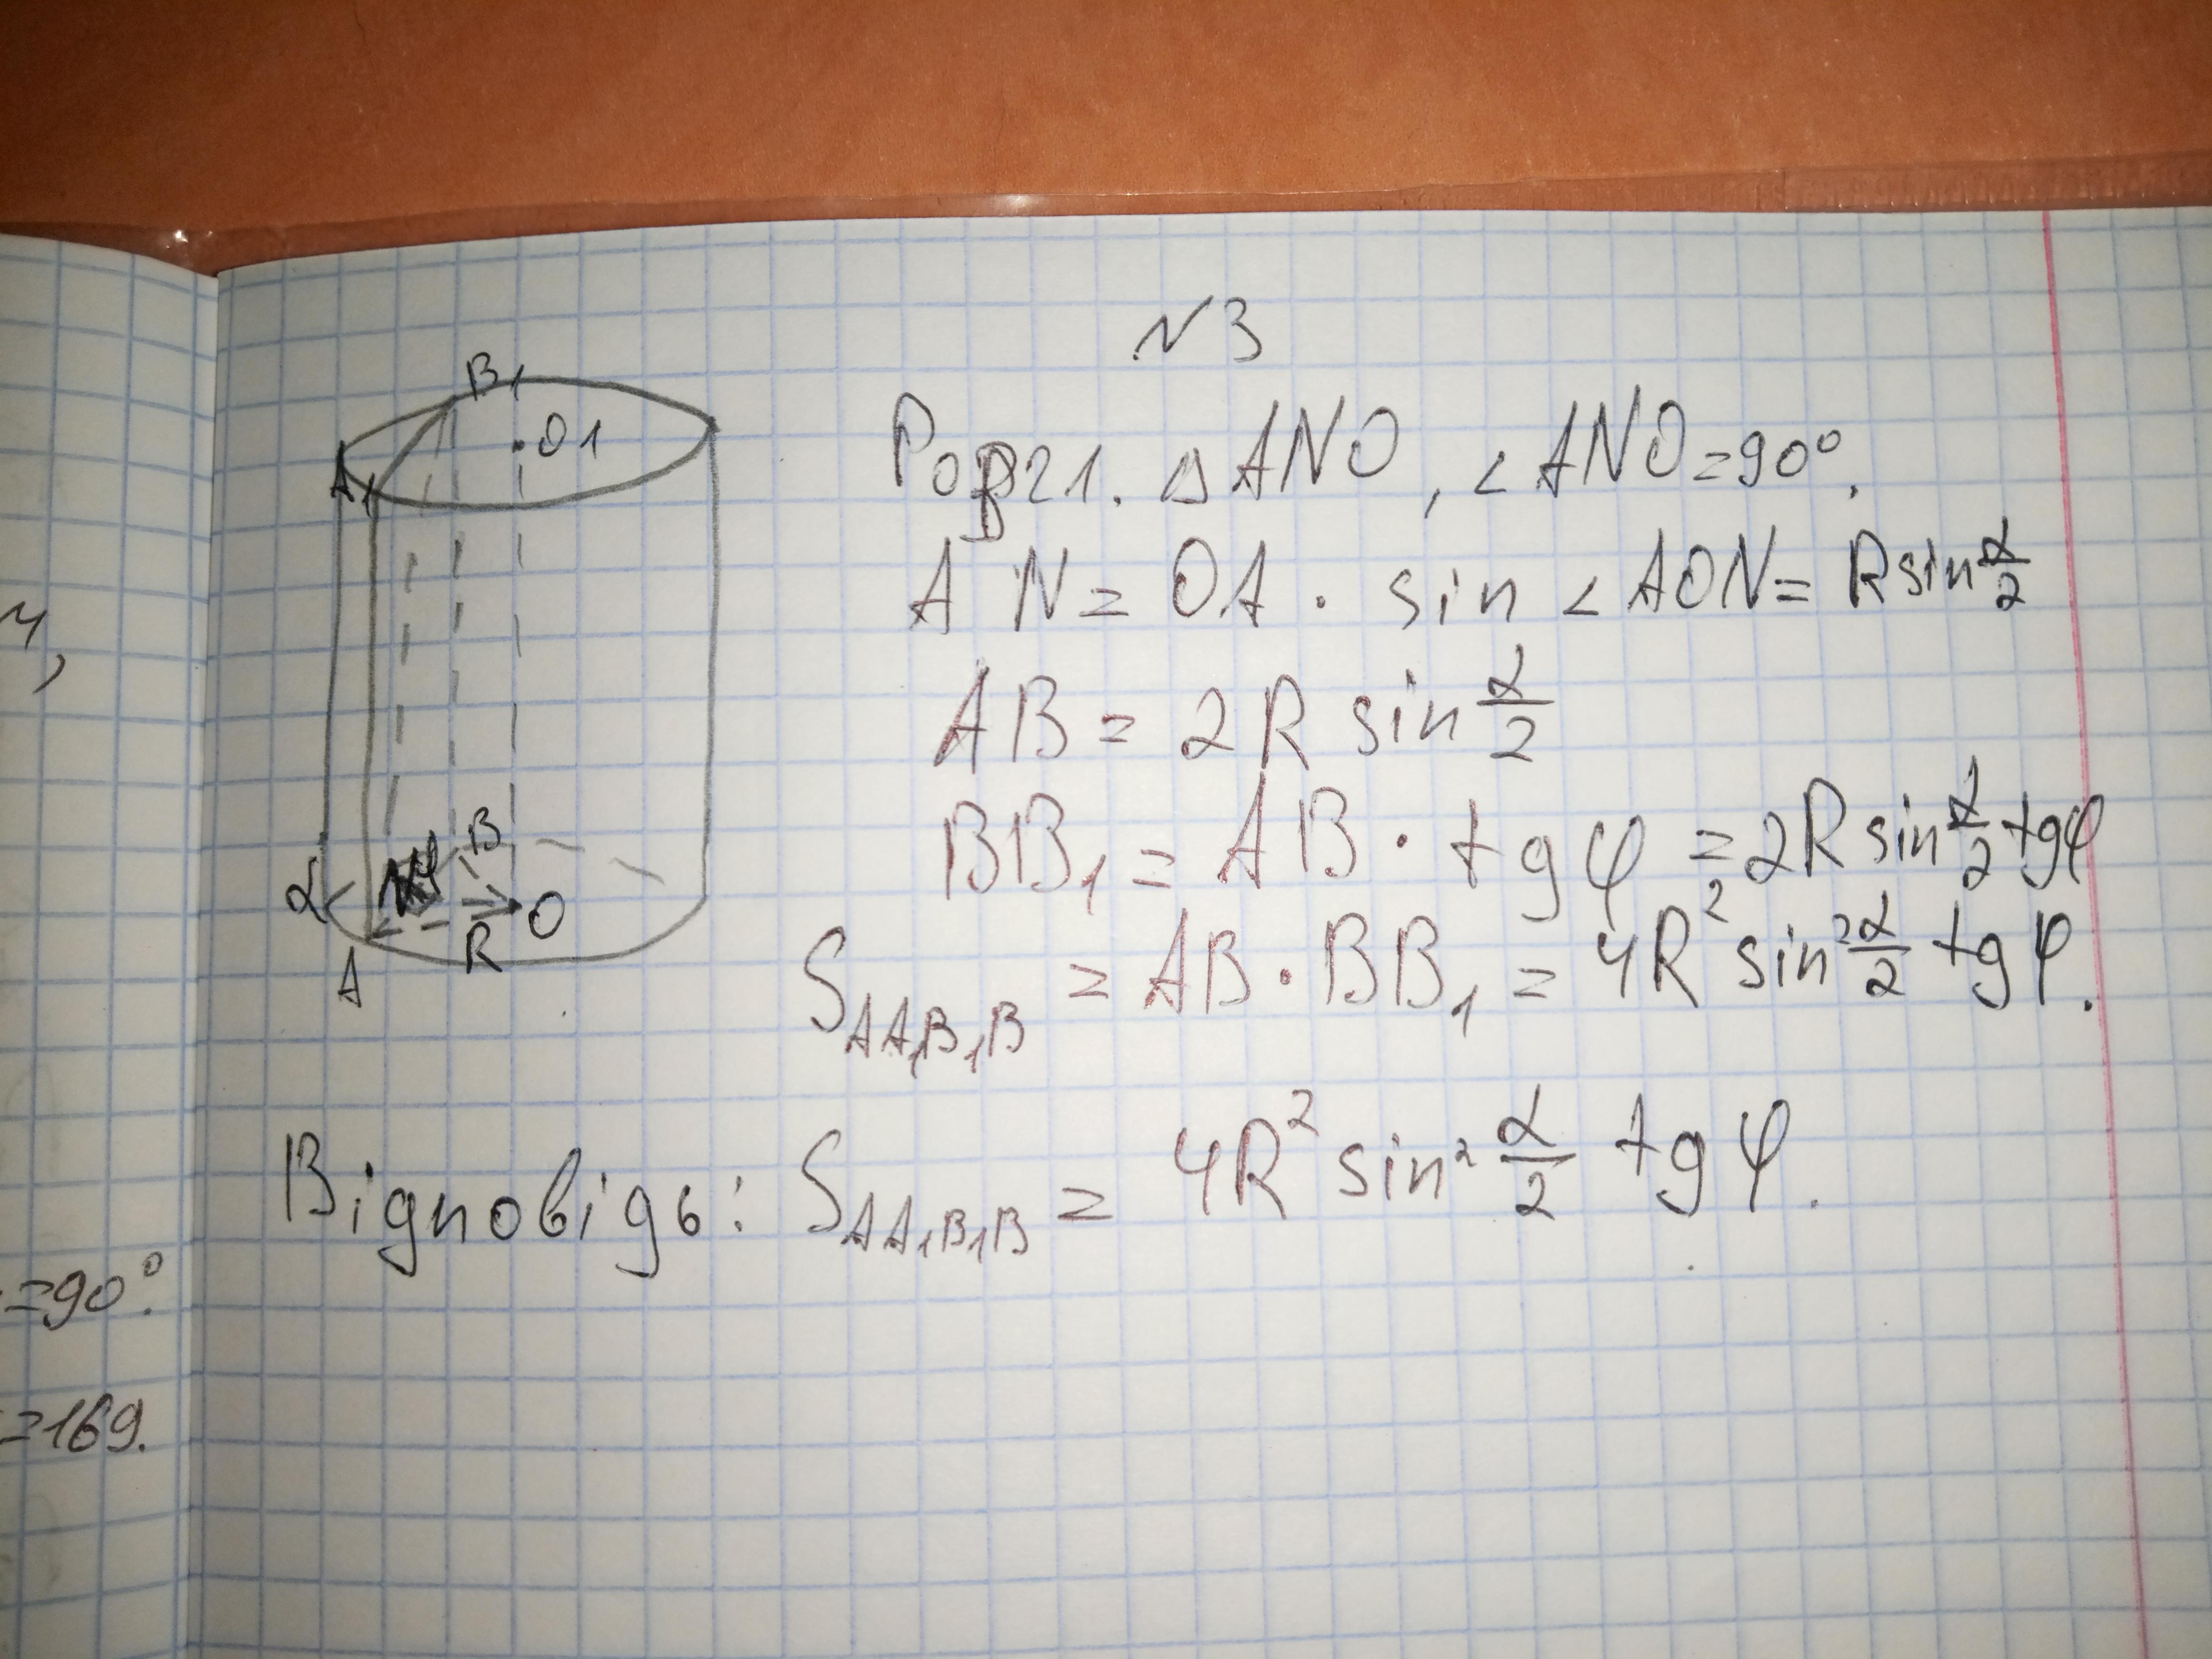 N3
B₁
O1
A₁
B
α
O
R
A
Розгл. △ANO, ∠ANO=90°.
AN = OA · sin ∠AON = R sin α/2
AB = 2R sin α/2
BB₁ = AB · tg φ = 2R sin α/2 tg φ
S_AA₁B₁B = AB · BB₁ = 4R² sin² α/2 tg φ.
Відповідь: S_AA₁B₁B = 4R² sin² α/2 tg φ.
=90°.
=169.